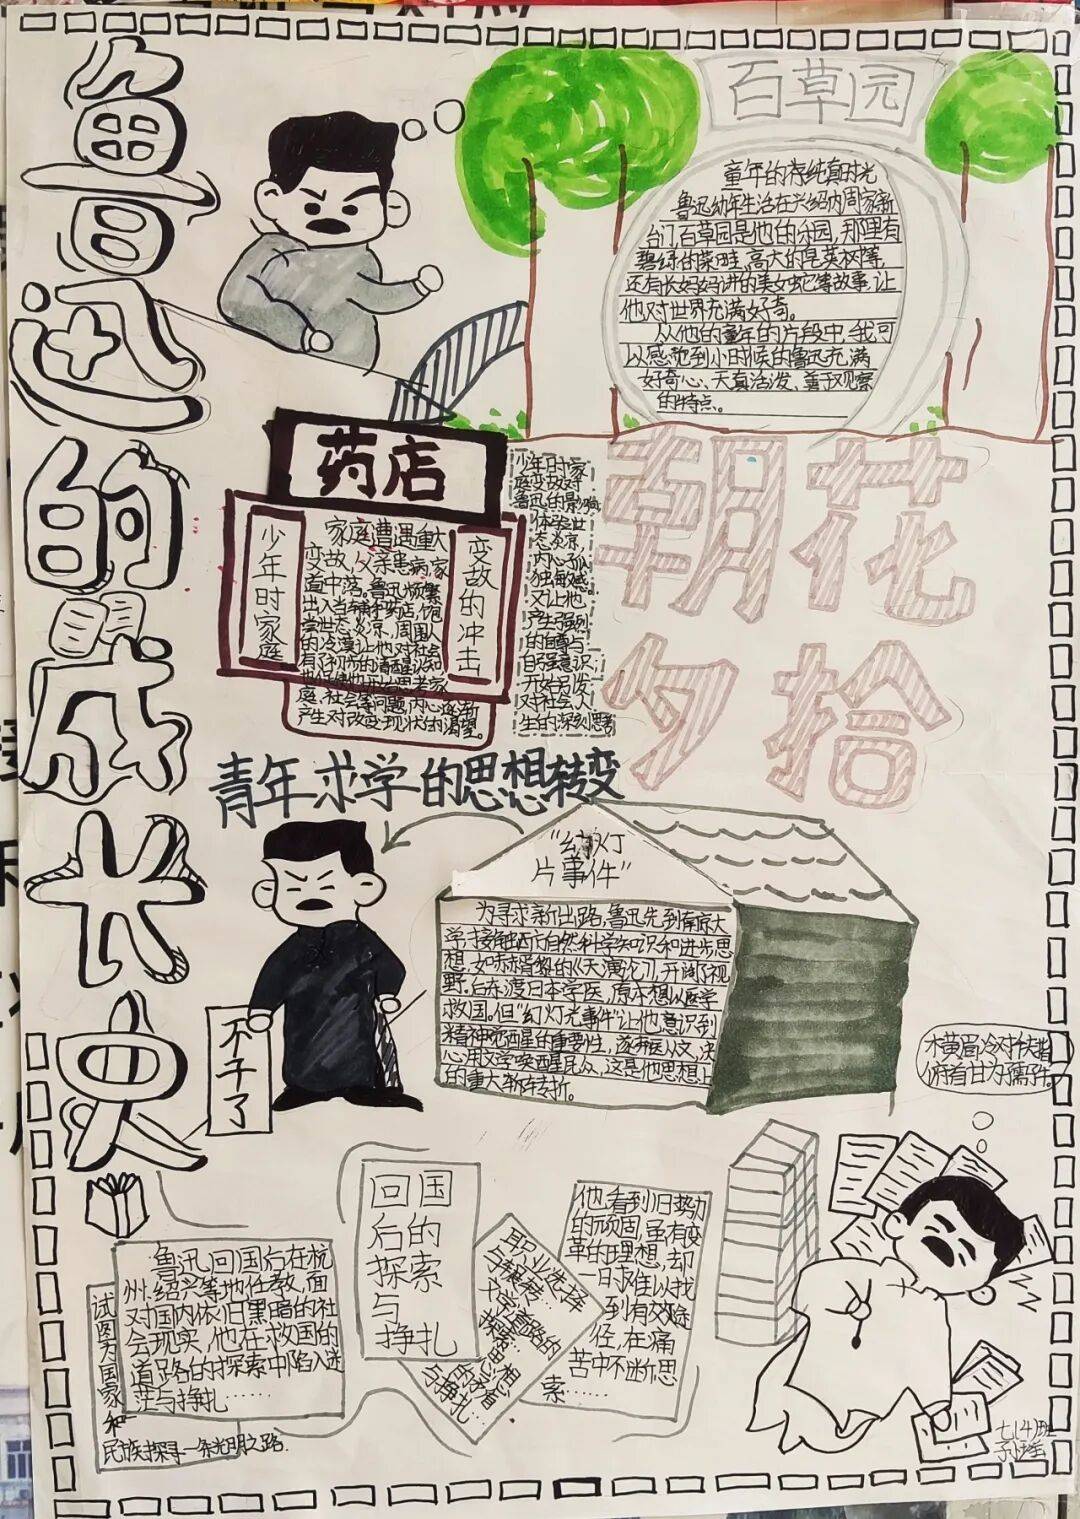 鲁迅的成长史
百草园
童年的存纯真时光
鲁迅幼年生活在兴绍内周家新
台门,百草园是他的乐园,那里有
碧绿的菜畦,高大的皂荚树等,
还有长妈妈讲的美女蛇等故事,让
他对世界充满好奇。
从他的童年的片段中,我可
以感觉到小时候的鲁迅充满
好奇心、天真活泼、善于观察
的特点。
药店
少年时家庭
变故的冲击
家庭遭遇重大
变故,父亲患病,家
道中落。鲁迅频繁
出入当铺和药店,饱
尝世态炎凉,周围人
的冷漠让他对社会
有了初步的清醒认知
也促使他开始思考家
庭、社会等问题,内心逐渐
产生对改变现状的渴望。
少年时家
庭变故对
鲁迅的影响
体尝世
态炎凉,
内心孤
独敏感。
又让他
产生强烈
的自尊与
自强意识,
开始引发
对社会、人
生的深刻思考
朝花
夕拾
青年求学的思想转变
“幻灯
片事件”
为寻求新出路,鲁迅先到南京大
学,接触西方自然科学知识和进步思
想,如赫胥黎的《天演论》,开阔了视
野。后东渡日本学医,原本想以医学
救国。但“幻灯光事件”让他意识到
精神觉醒的重要性,遂弃医从文,决
心用文学唤醒民众,这是他思想上
的重大新转折。
不干了
木黄眉冷对千夫指
俯首甘为孺子牛。
回国
后的
探索
与
挣扎
鲁迅回国后在杭
州、绍兴等地任教,面
对国内依旧黑暗的社
会现实,他在救国的
道路的探索中陷入迷
茫与挣扎……
试图为国家和
民族探寻一条光明之路.
职业选择
与探转…
文学道路的
探索思想
与挣扎…
他看到旧势力
的顽固,虽有变
革的理想,却
一时难以找
到有效途
径,在痛
苦中不断思
索……
七(4)班